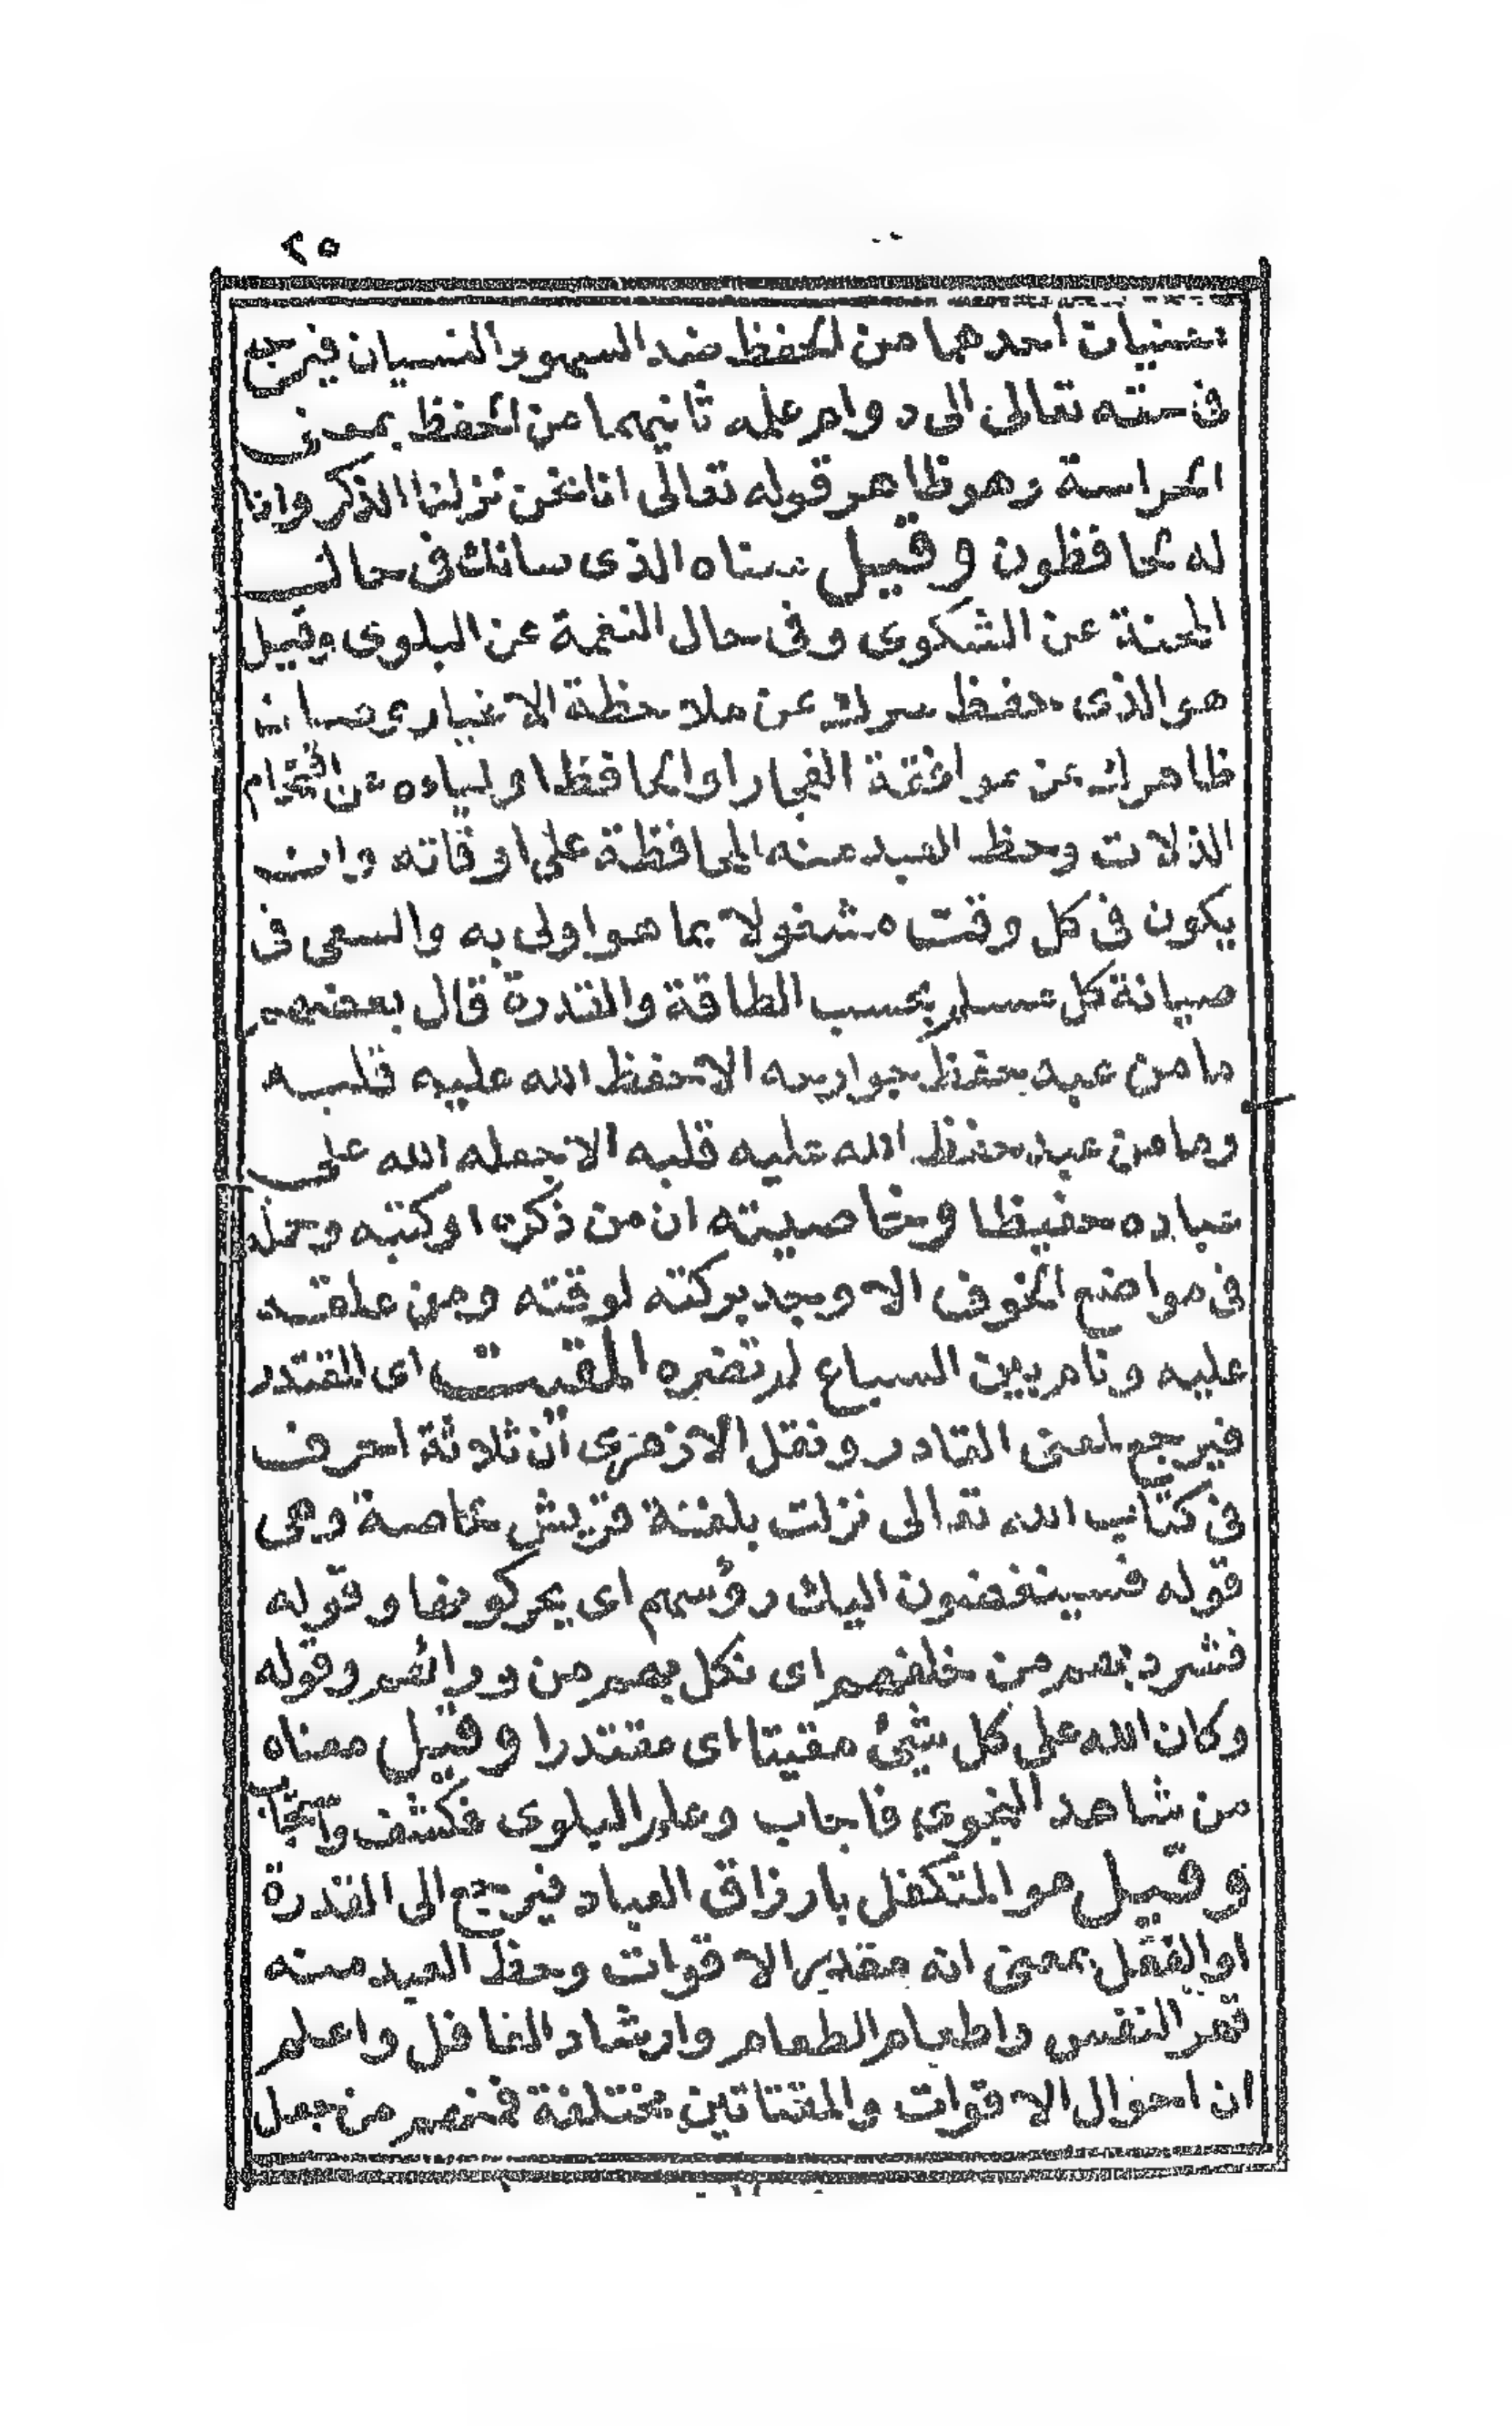 ٢٥
معنيان احدهما من الحفظ ضد السهو والنسيان فيرجع
فى حقه تعالى الى دوام علمه ثانيهما من الحفظ بمعنى
الحراسة وهو ظاهر قوله تعالى انا نحن نزلنا الذكر وانا
له لحافظون وقيل معناه الذى صانك فى حال
المحنة عن الشكوى وفى حال النعمة عن البلوى وقيل
هو الذى حفظ سرك عن ملاحظة الاغيار وصان
ظاهرك عن موافقة الفجار او الحافظ اولياءه عن اقتحام
الذلات وحظ العبد منه المحافظة على اوقاته وان
يكون فى كل وقت مشغولا بما هو اولى به والسعى فى
صيانة كل مسلم بحسب الطاقة والقدرة قال بعضهم
ما من عبد حفظ جوارحه الا حفظ الله عليه قلبه
وما من عبد حفظ الله عليه قلبه الا جعله الله على
عباده حفيظا وخاصيته ان من ذكره او كتبه وحمله
فى مواضع الخوف الا وجد بركته لوقته ومن علقه
عليه ونام بين السباع لم تضره المقيت اى المقتدر
فيرجع لمعنى القادر ونقل الازهرى ان ثلاثة احرف
فى كتاب الله تعالى نزلت بلغة قريش خاصة وهى
قوله فسينغضون اليك رؤسهم اى يحركونها وقوله
فشرد بهم من خلفهم اى نكل بهم من ورائهم وقوله
وكان الله على كل شئ مقيتا اى مقتدرا وقيل معناه
من شاهد النجوى فاجاب وعلم البلوى فكشف واستجاب
وقيل هو المتكفل بارزاق العباد فيرجع الى القدرة
او الفعل بمعنى انه مقدر الاقوات وحظ العبد منه
قهر النفس واطعام الطعام وارشاد الغافل واعلم
ان احوال الاقوات والمقتاتين مختلفة فمنهم من جعل